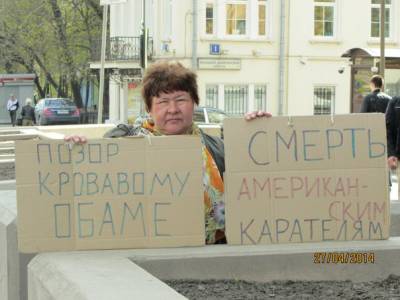 ПОЗОР
КРОВАВОМУ
ОБАМЕ
СМЕРТЬ
АМЕРИКАН-
СКИМ
КАРАТЕЛЯМ
27/04/2014